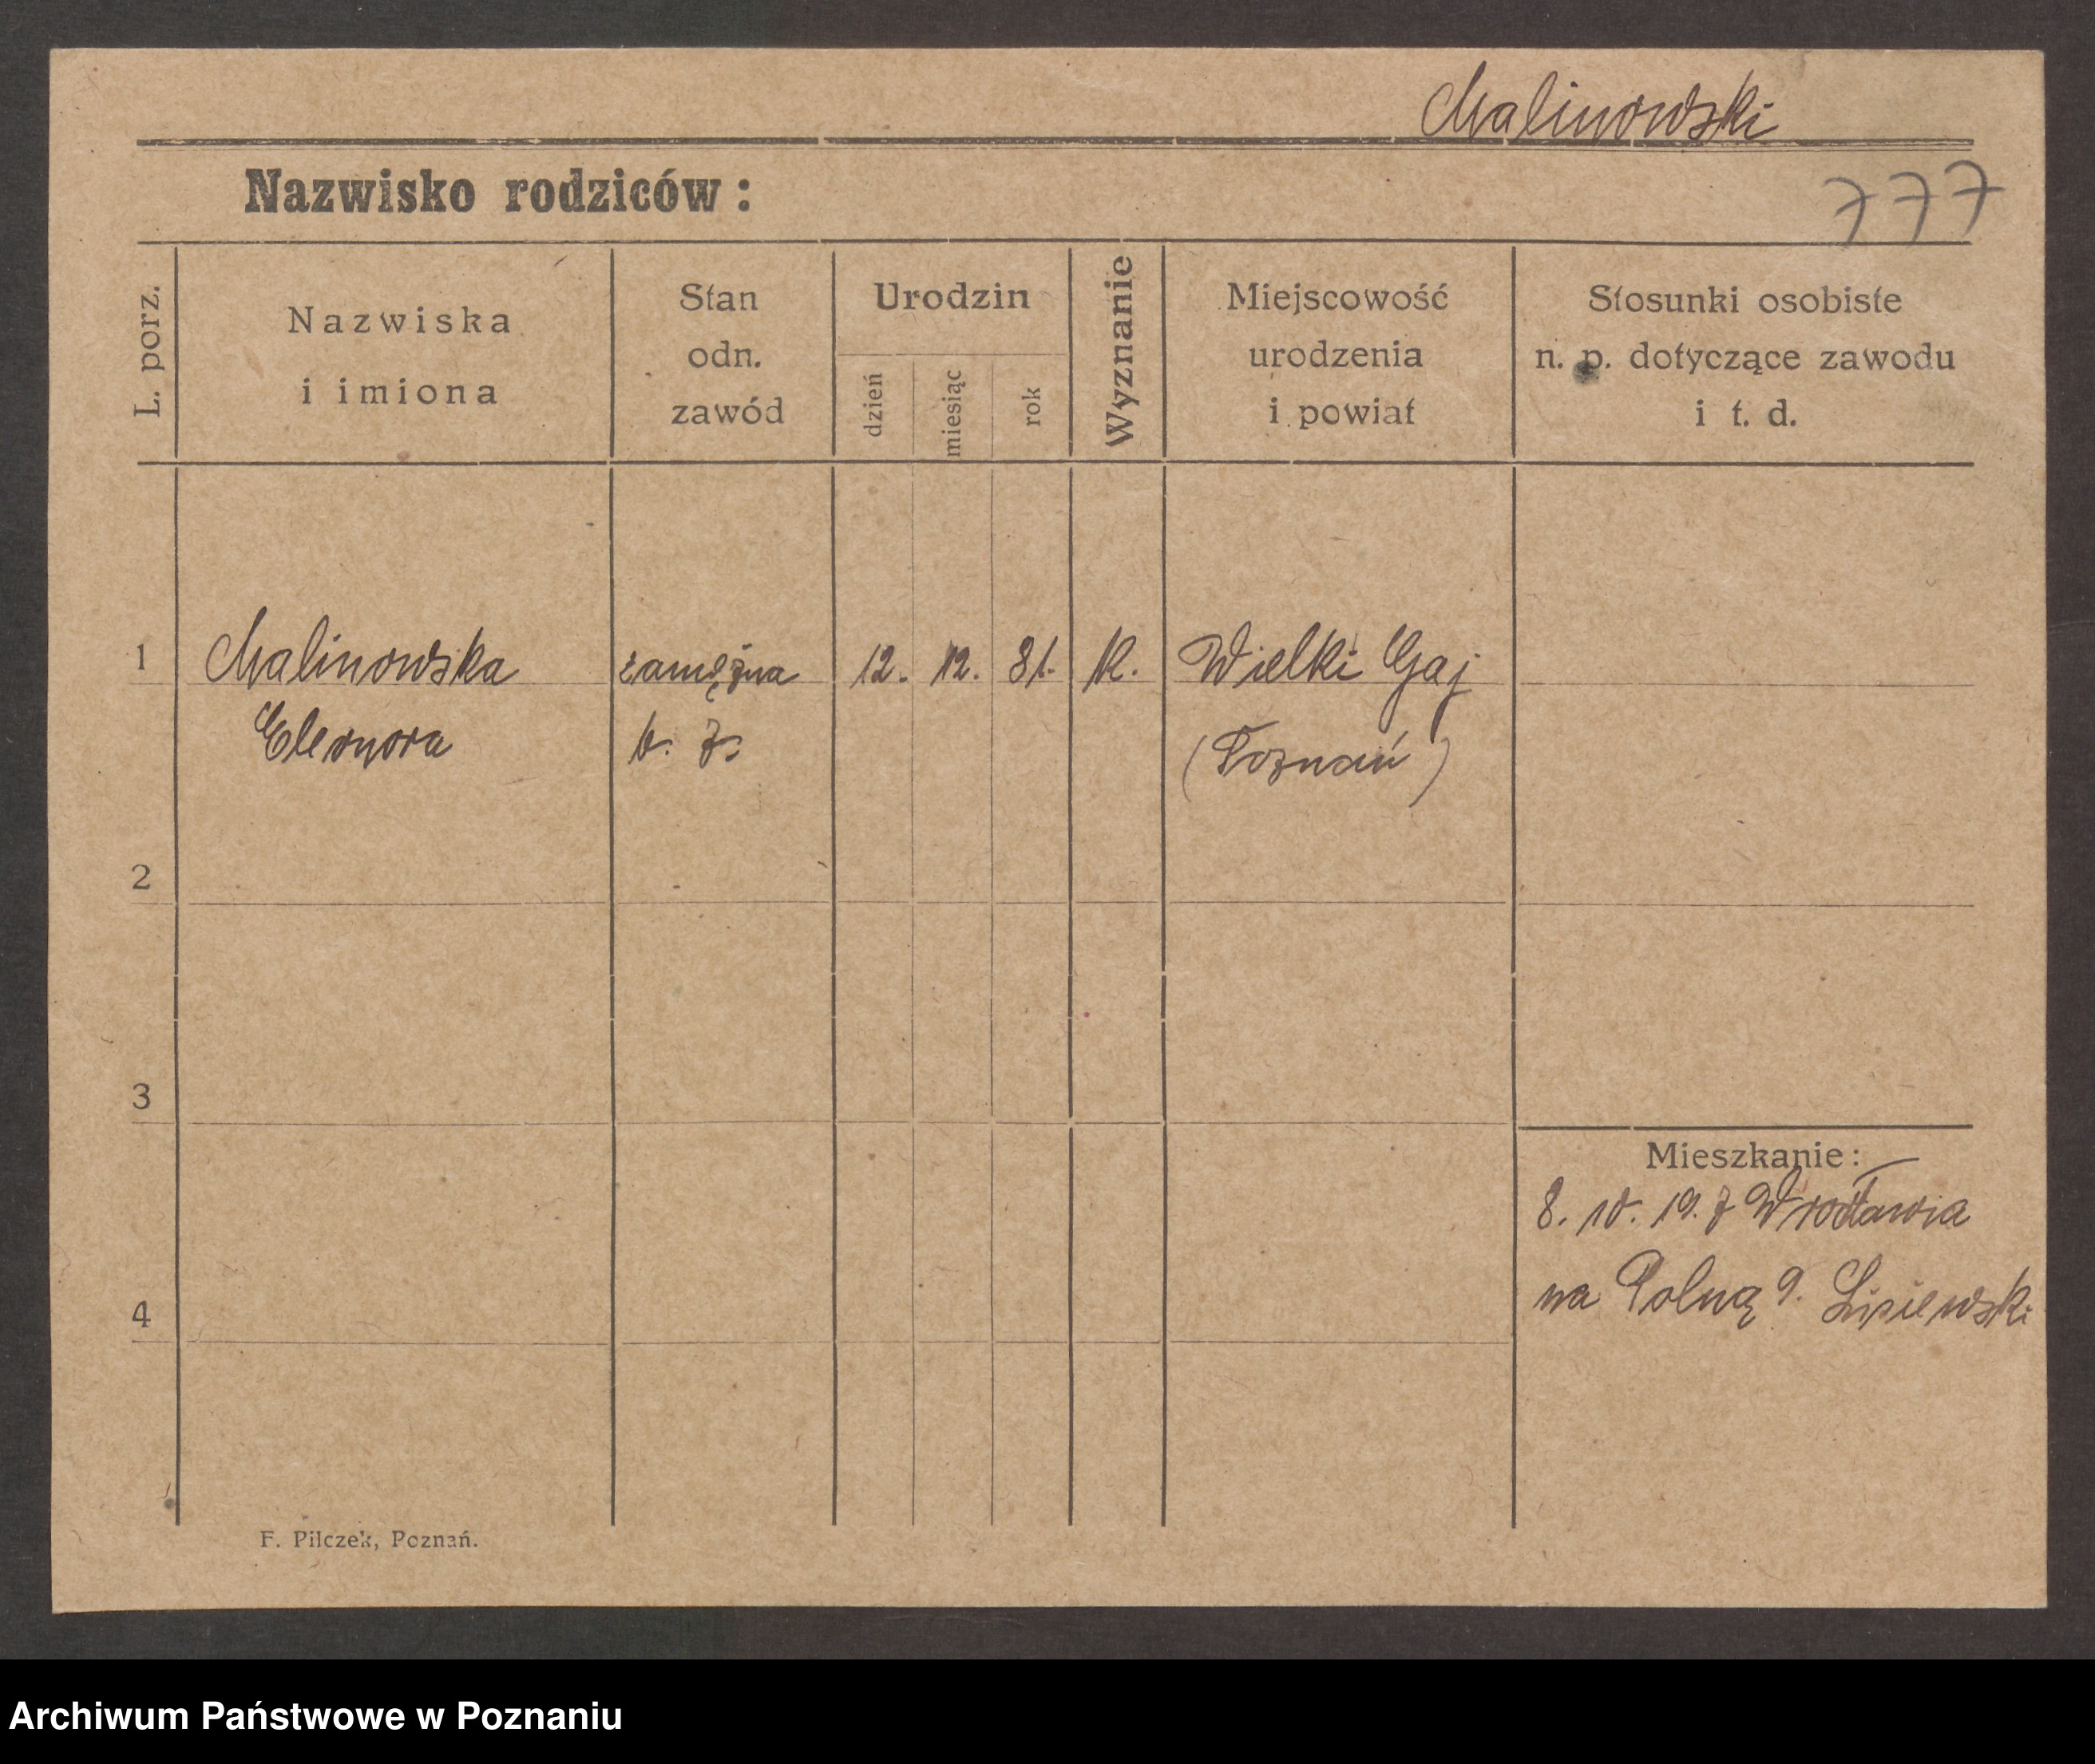 Malinowski
Nazwisko rodziców :
777
L. porz.
Nazwiska
i imiona
Stan
odn.
zawód
Urodzin
dzień
miesiąc
rok
Wyznanie
Miejscowość
urodzenia
i powiat
Stosunki osobiste
n. p. dotyczące zawodu
i t. d.
1 Malinowska zamężna 12. 12. 81. K. Wielki Gaj
Eleonora b. z. (Poznań)
2
3
Mieszkanie :
8. 10. 19. z Wrocławia
4
na Polną 9. Lisiewski
F. Pilczek, Poznań.
Archiwum Państwowe w Poznaniu